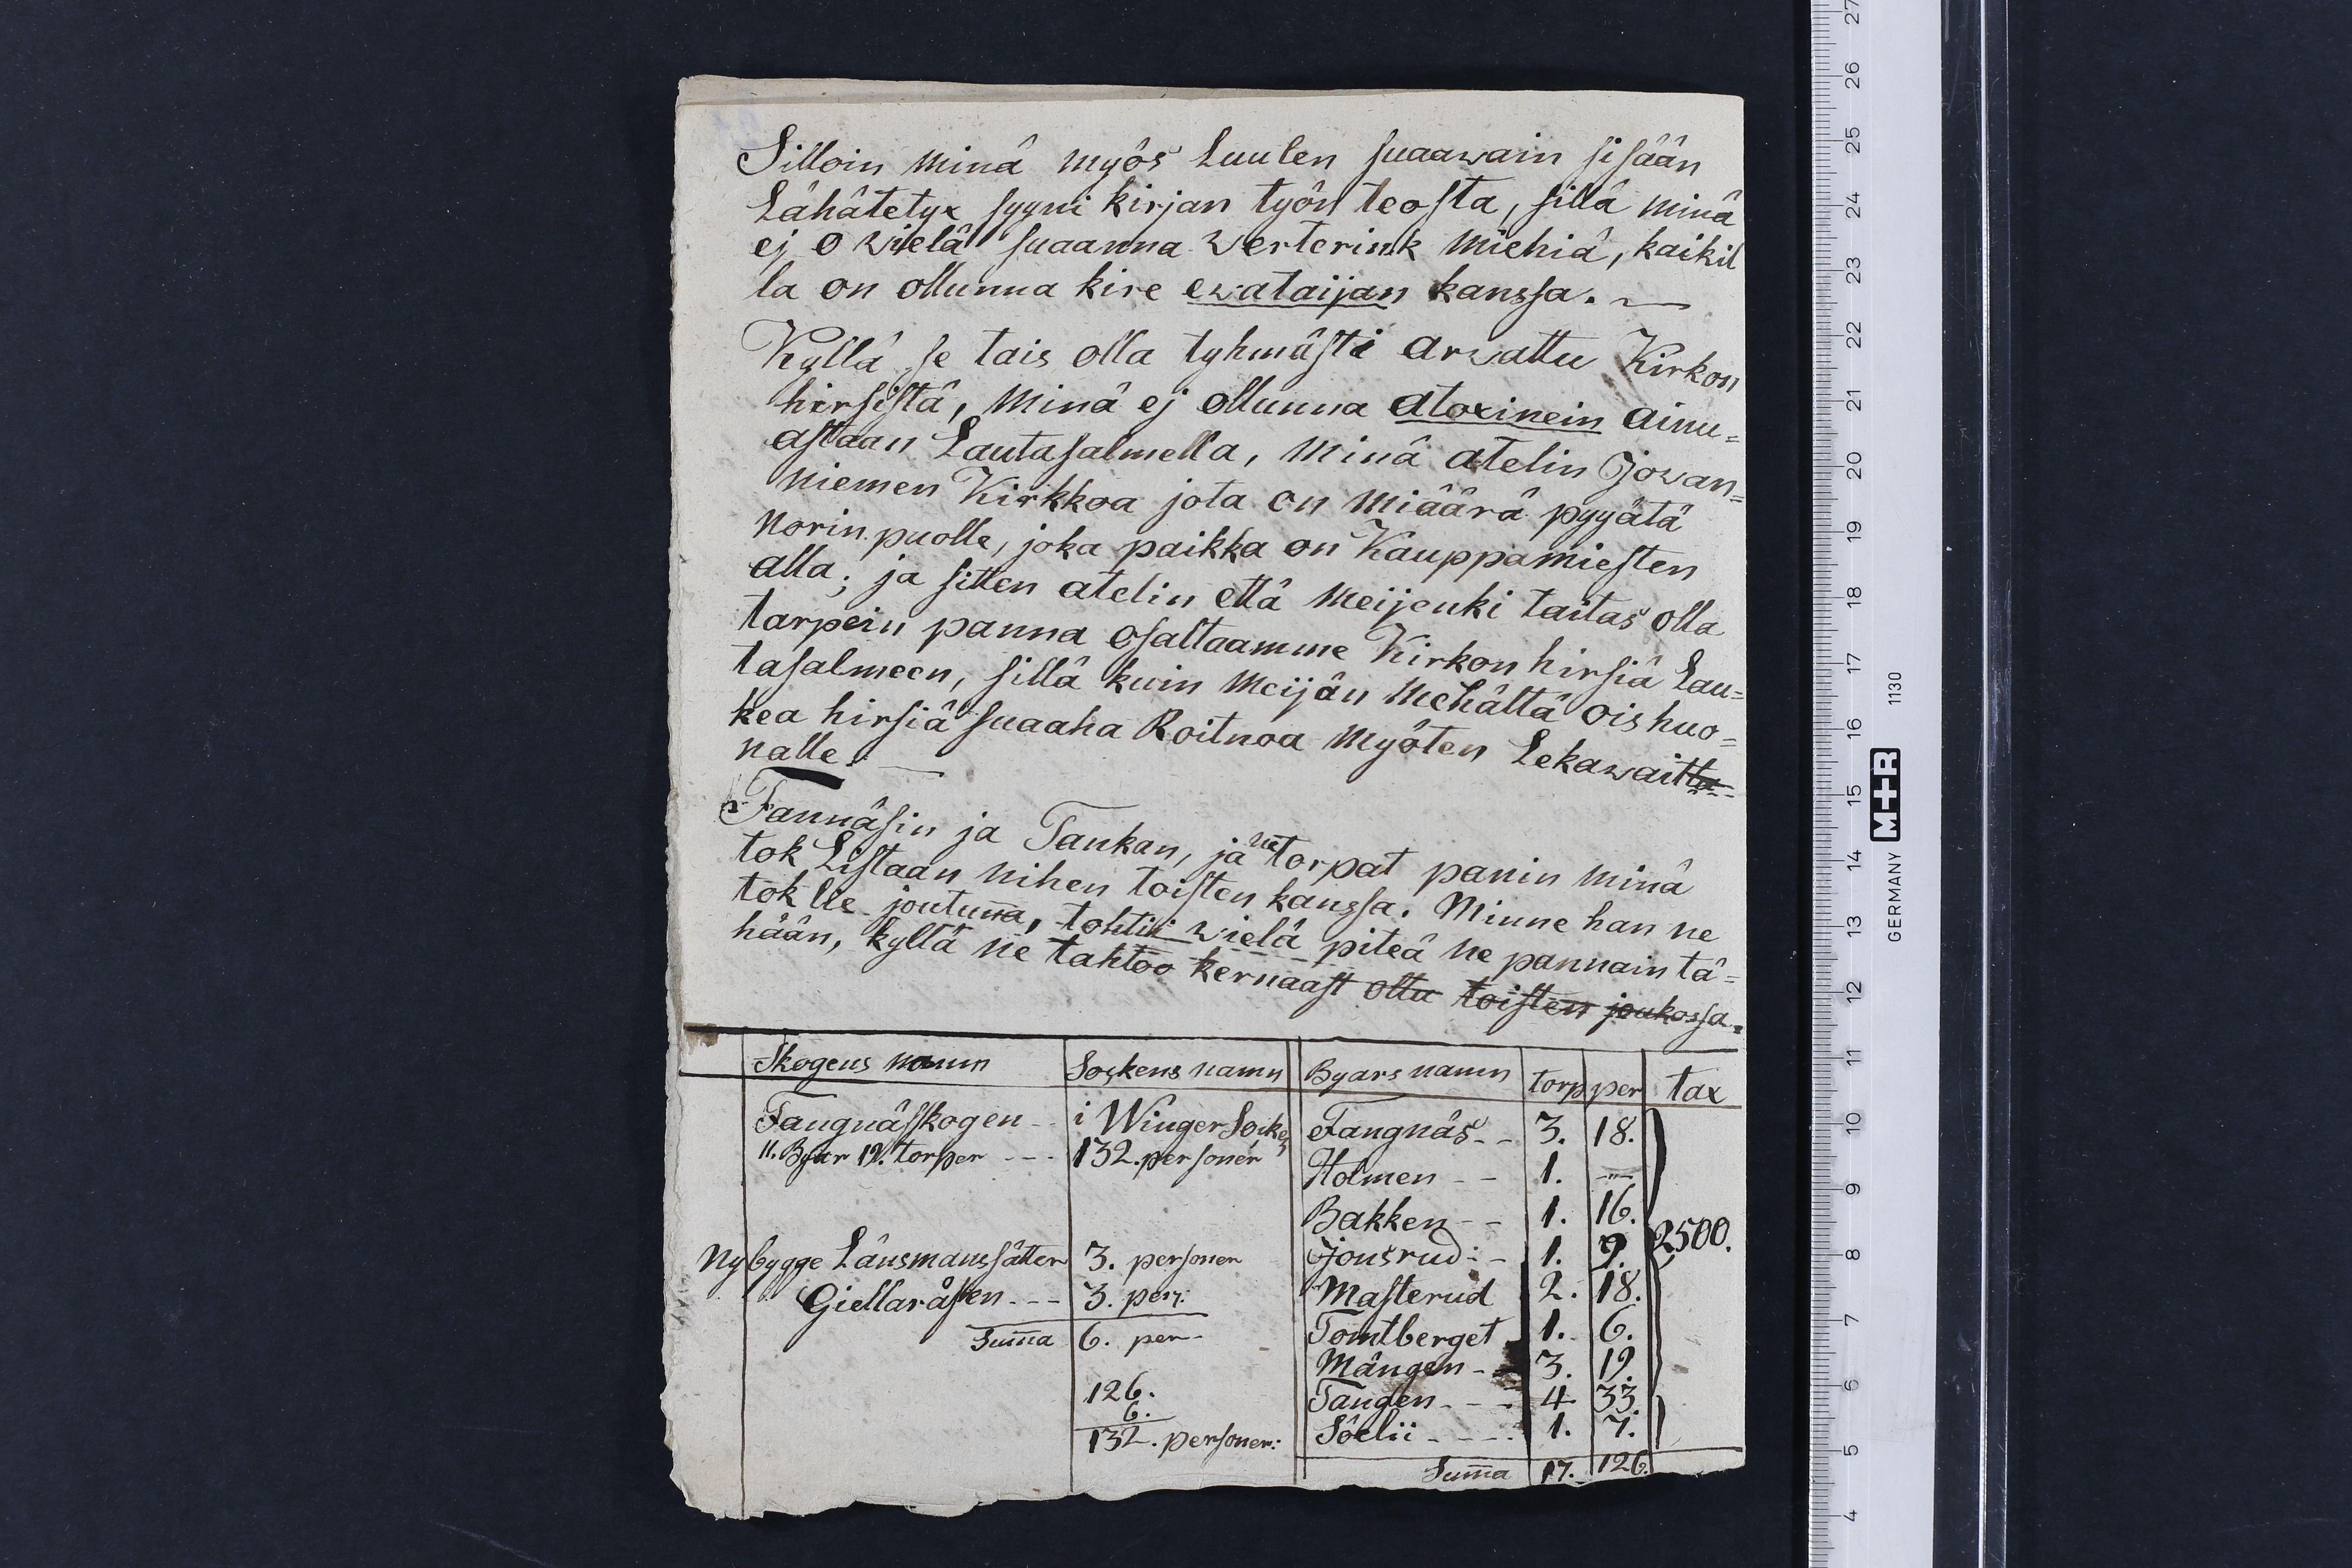 Silloin minä myös Luulen suaawain sisään
Lähätetyx syyni kirjan työn teosta, sillä minä
ej o wielä suaanna werterink miehiä, kaikil
la on ollunna kire ewataijan kanssa. —
Kyllä se tais olla tyhmästi arwattu Kirkon
hirsistä, minä ej ollunna atoxinein ainu=
astaan Lautasalmella, minä atelin Jowan=
niemen Kirkkoa jota on miäärä pyyätä
Norin puolle, joka paikka on Kauppamiesten
alla; ja sitten atelin että meijenki taitas olla
tarpein panna osaltaamme Kirkon hirsiä Lau=
tasalmeen, sillä kuin meijän mehältä ois huo=
kea hirsiä suaaha Roitnoa myöten Lekawaitta
nalle. —
Fannäsin ja Tankan, ja ne torpat panin minä
tok Listaan nihen toisten kanssa. Minne han ne
tok lie joutunna, tohtin wielä piteä ne pannain tä=
hään, kyllä ne tahtoo kernaast olla toisten joukossa.
Skogens namn Sockens namn Byars namn torp per tax
Fangnässkogen -- i Winger Socken Fangnäs -- 3. 18.
11. Byar 19. torper --- 132. personer Holmen -- 1. —"—
Bakken -- 1. 16.
2500.
Nybygge Länsmanssätter 3. personer Jonsrud: - 1. 9.
Giellaråsen --- 3. per: Masterud 2. 18.
Summa 6. per- Tomtberget 1. 6.
Mången -- 3. 19.
126. Tangen --- 4. 33.
6.
132. personer: Söelii ---- 1. 7.
Summa 17. 126.
27
26
25
24
23
22
21
20
19
18
17
16
15
14
13
12
11
10
9
8
7
6
5
4
GERMANY M+R 1130